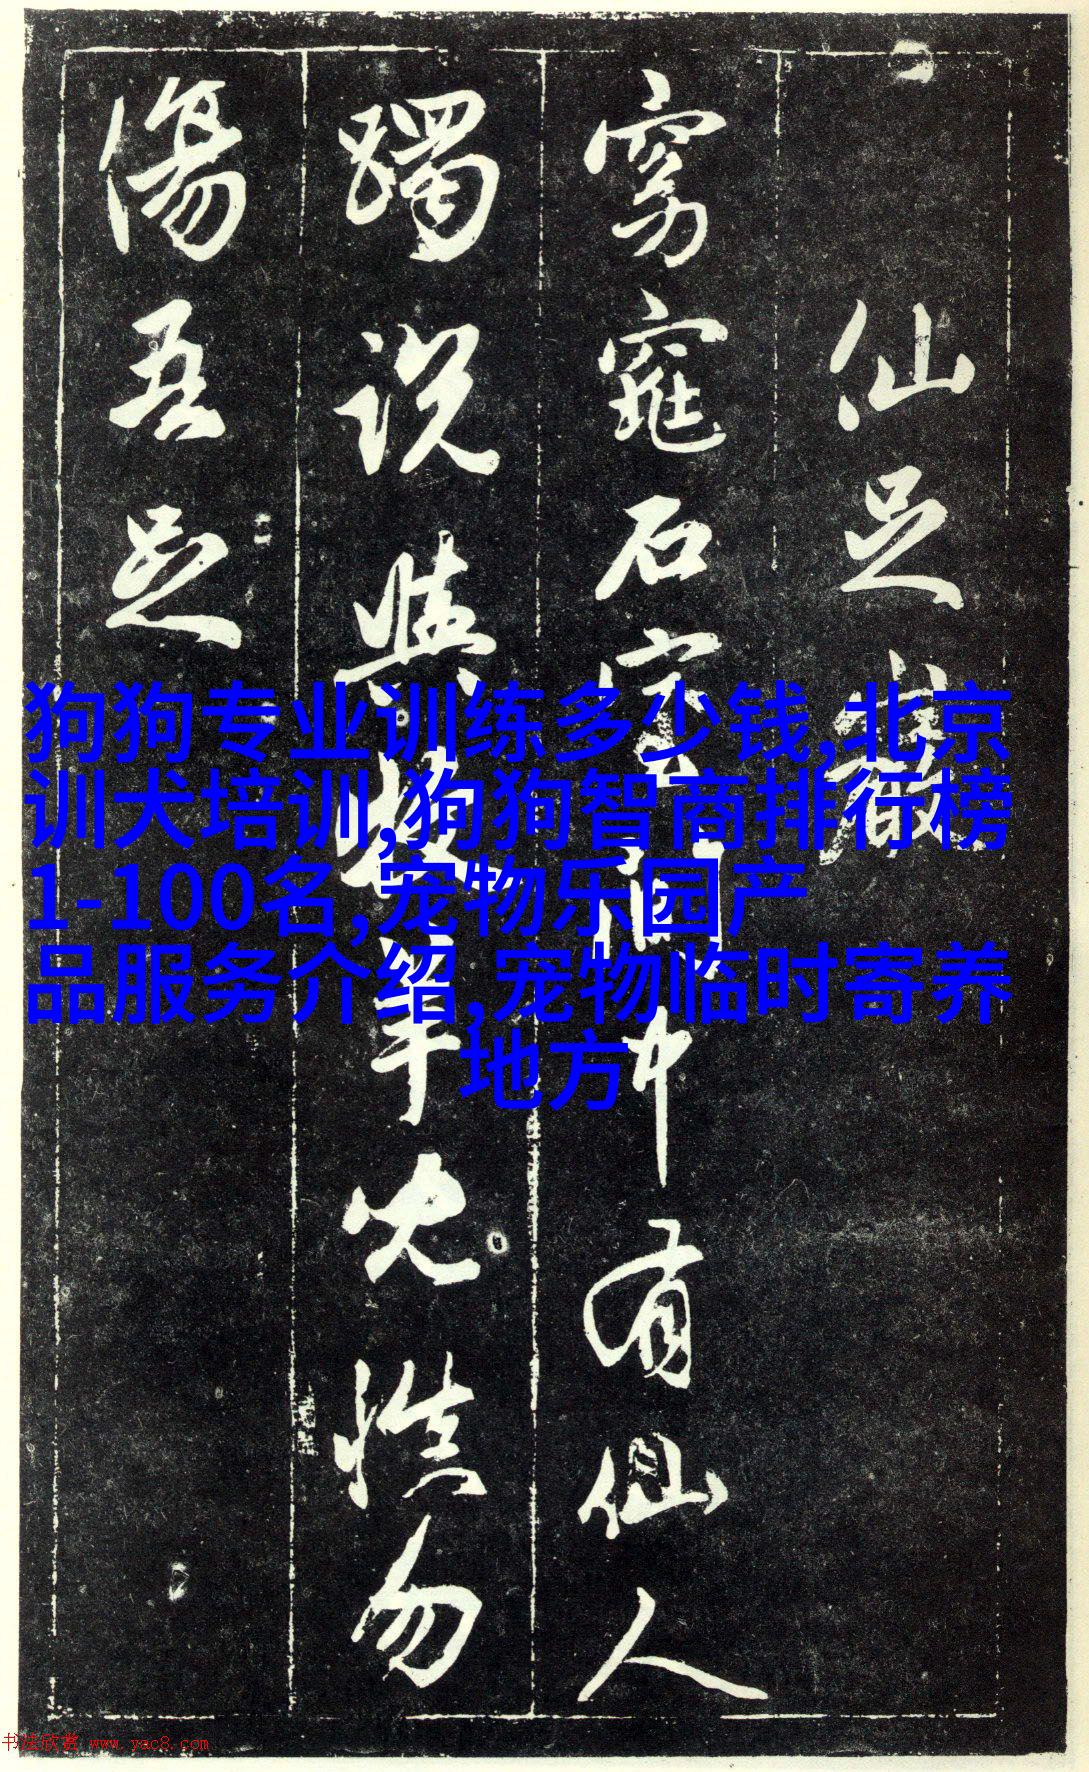 仙足巖
窈窕石室間中有仙人
躅說與牧羊兒慎勿
傷吾足
狗狗专业训练多少钱,北京
训犬培训,狗狗智商排行榜
1-100名,宠物乐园产
品服务介绍,宠物临时寄养
地方
书法欣赏 www.yac8.com